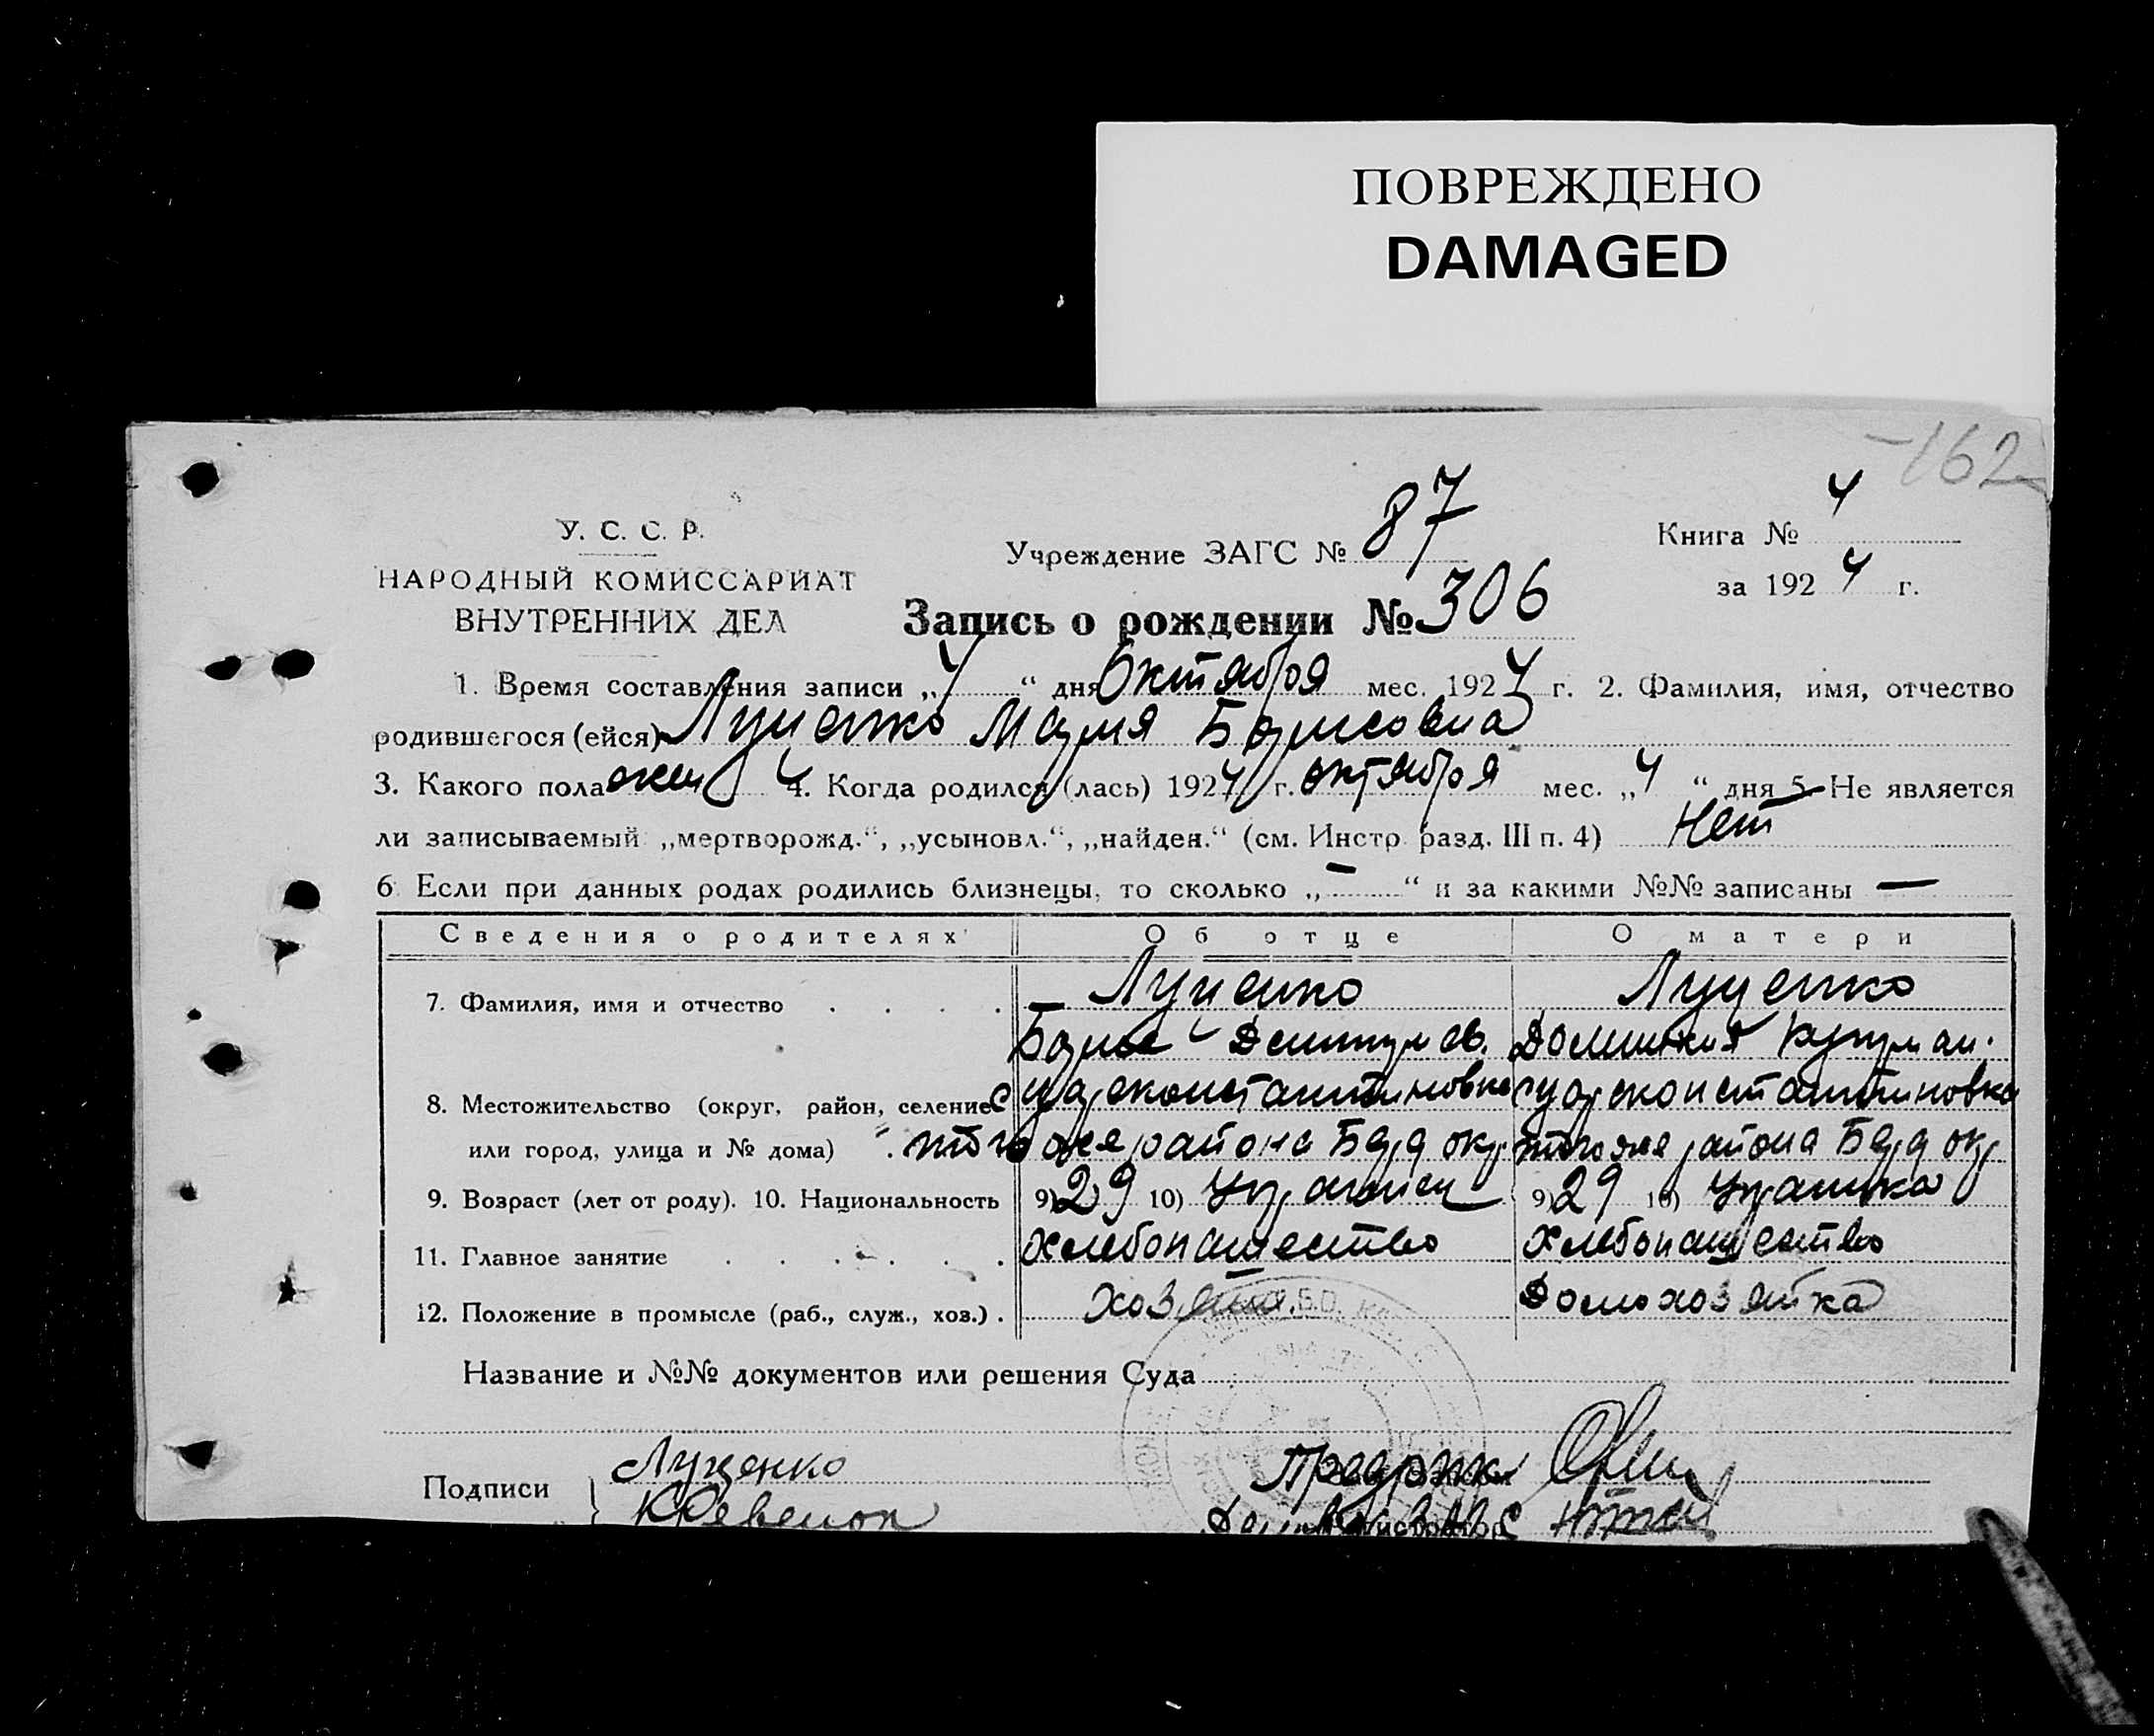 ПОВРЕЖДЕНО
DAMAGED
162
У. С. С. Р.
НАРОДНЫЙ КОМИССАРИАТ
ВНУТРЕННИХ ДЕЛ
Учреждение ЗАГС № 87
Книга № 4
за 1924 г.
Запись о рождении № 306
1. Время составления записи „4“ дня Октября мес. 1924 г. 2. Фамилия, имя, отчество
родившегося (ейся) Луценко Мария Борисовна
3. Какого пола жен 4. Когда родился (лась) 1924 г. октября мес. „4“ дня 5. Не является
ли записываемый „мертворожд.“, „усыновл.“, „найден.“ (см. Инстр. разд. III п. 4) Нет
6. Если при данных родах родились близнецы, то сколько „—“ и за какими №№ записаны —
Сведения о родителях Об отце О матери
7. Фамилия, имя и отчество . . . . Луценко Луценко
Борис
8. Местожительство (округ, район, селение с Цареконстантиновка с Цареконстантиновка
или город, улица и № дома) . того же района Берд окр того же района Берд окр
9. Возраст (лет от роду). 10. Национальность 9) 29 10) Украинец 9) 29 10) Украинка
11. Главное занятие . . . . . . Хлебопашество Хлебопашество
12. Положение в промысле (раб., служ., хоз.) . хозяин Домохозяйка
Название и №№ документов или решения Суда
Подписи Луценко